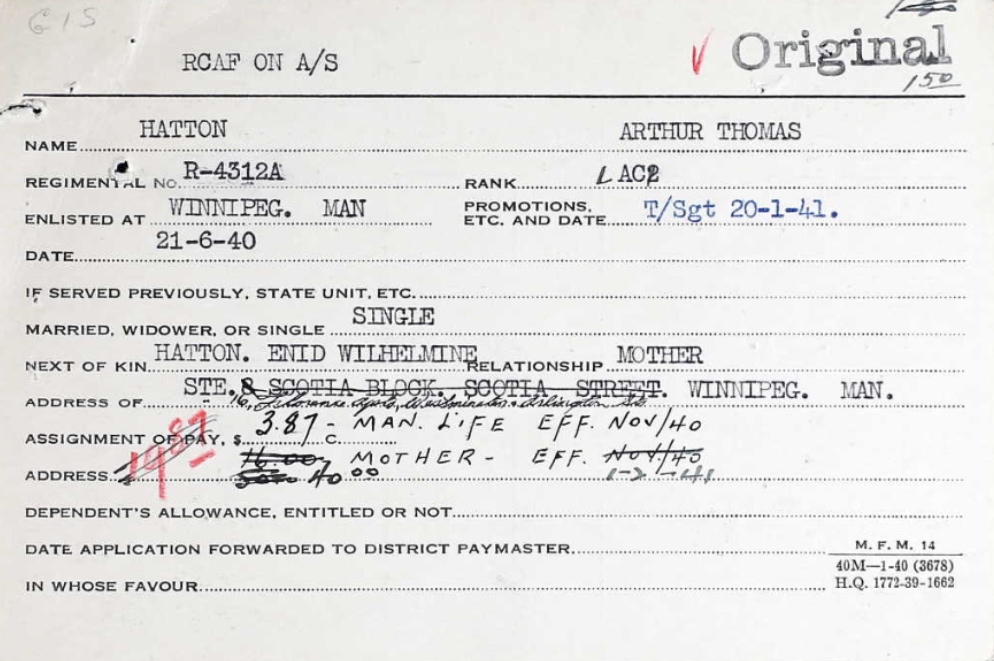 GIS
RCAF ON A/S
Original
150
NAME HATTON ARTHUR THOMAS
REGIMENTAL NO. R-4312A RANK LAC2
ENLISTED AT WINNIPEG. MAN PROMOTIONS, ETC. AND DATE T/Sgt 20-1-41.
DATE 21-6-40
IF SERVED PREVIOUSLY, STATE UNIT, ETC.
MARRIED, WIDOWER, OR SINGLE SINGLE
NEXT OF KIN HATTON. ENID WILHELMINE RELATIONSHIP MOTHER
ADDRESS OF STE. 8 SCOTIA BLOCK. SCOTIA STREET. WINNIPEG. MAN.
16, Apts, Westminster & Arlington Sts
ASSIGNMENT OF PAY, $ C. 3.87 - MAN. LIFE EFF. NOV/40
1987
16.00 MOTHER - EFF. NOV/40
ADDRESS 40 00 1-2-41
DEPENDENT'S ALLOWANCE, ENTITLED OR NOT
DATE APPLICATION FORWARDED TO DISTRICT PAYMASTER
IN WHOSE FAVOUR
M. F. M. 14
40M—1-40 (3678)
H.Q. 1772-39-1662